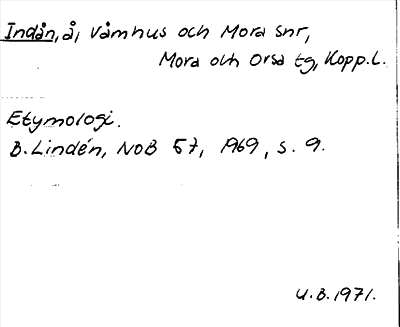 Indån, å, Våmhus och Mora snr,
Mora och Orsa tg, Kopp.l.
Etymologi.
B. Lindén, NoB 57, 1969, s. 9.
U.B. 1971.